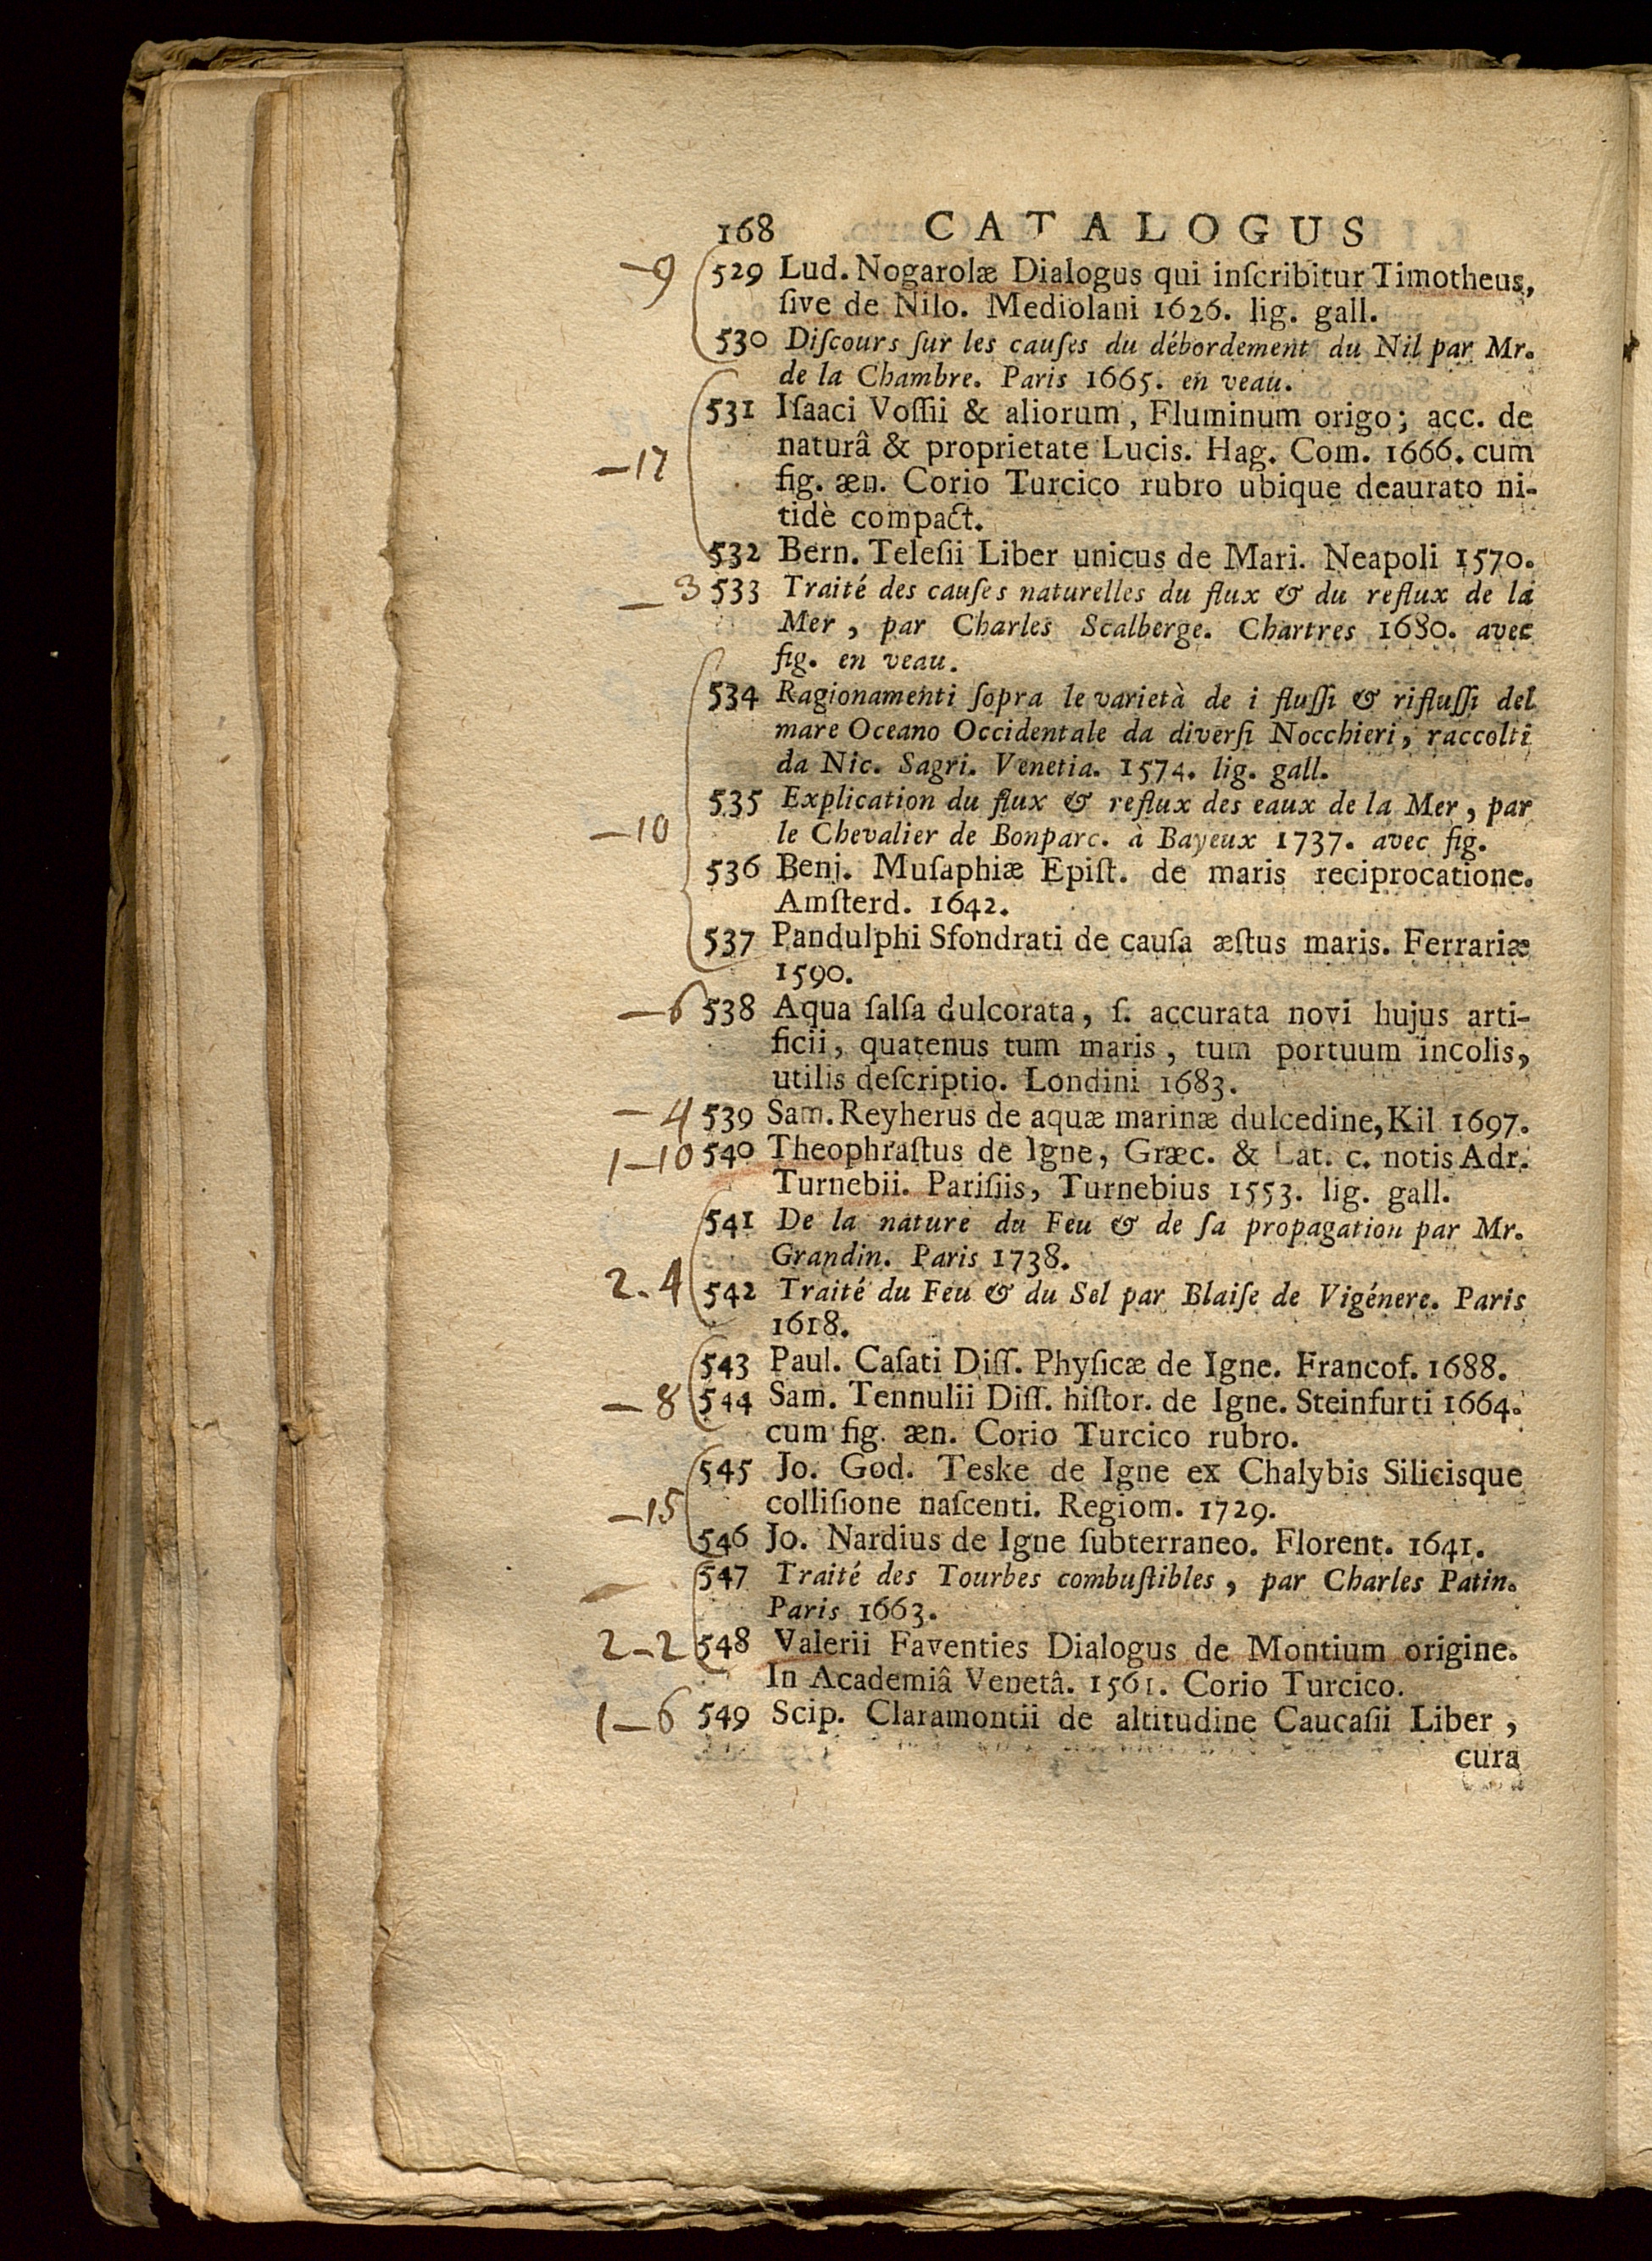 168 CATALOGUS
—9 529 Lud. Nogarolæ Dialogus qui inſcribitur Timotheus,
ſive de Nilo. Mediolani 1626. lig. gall.
530 Diſcours ſur les cauſes du débordement du Nil par Mr.
de la Chambre. Paris 1665. en veau.
531 Iſaaci Voſſii & aliorum, Fluminum origo; acc. de
naturâ & proprietate Lucis. Hag. Com. 1666. cum
—17 fig. æn. Corio Turcico rubro ubique deaurato ni-
tidè compact.
532 Bern. Teleſii Liber unicus de Mari. Neapoli 1570.
—3 533 Traité des cauſes naturelles du flux & du reflux de la
Mer, par Charles Scalberge. Chartres 1680. avec
fig. en veau.
534 Ragionamenti ſopra le varietà de i fluſſi & rifluſſi del
mare Oceano Occidentale da diverſi Nocchieri, raccolti
da Nic. Sagri. Venetia. 1574. lig. gall.
535 Explication du flux & reflux des eaux de la Mer, par
—10 le Chevalier de Bonparc. à Bayeux 1737. avec fig.
536 Benj. Muſaphiæ Epiſt. de maris reciprocatione.
Amſterd. 1642.
537 Pandulphi Sfondrati de cauſa æſtus maris. Ferrariæ
1590.
—6 538 Aqua ſalſa dulcorata, ſ. accurata novi hujus arti-
ficii, quatenus tum maris, tum portuum incolis,
utilis deſcriptio. Londini 1683.
—4 539 Sam. Reyherus de aquæ marinæ dulcedine, Kil 1697.
1—10 540 Theophraſtus de Igne, Græc. & Lat. c. notis Adr.
Turnebii. Pariſiis, Turnebius 1553. lig. gall.
541 De la nature du Feu & de ſa propagation par Mr.
Grandin. Paris 1738.
2.4 542 Traité du Feu & du Sel par Blaiſe de Vigénere. Paris
1618.
543 Paul. Caſati Diſſ. Phyſicæ de Igne. Francof. 1688.
—8 544 Sam. Tennulii Diſſ. hiſtor. de Igne. Steinfurti 1664.
cum fig. æn. Corio Turcico rubro.
545 Jo. God. Teske de Igne ex Chalybis Silicisque
—15 colliſione naſcenti. Regiom. 1729.
546 Jo. Nardius de Igne ſubterraneo. Florent. 1641.
— 547 Traité des Tourbes combuſtibles, par Charles Patin.
Paris 1663.
2—2 548 Valerii Faventies Dialogus de Montium origine.
In Academiâ Venetâ. 1561. Corio Turcico.
1—6 549 Scip. Claramontii de altitudine Caucaſii Liber,
cura